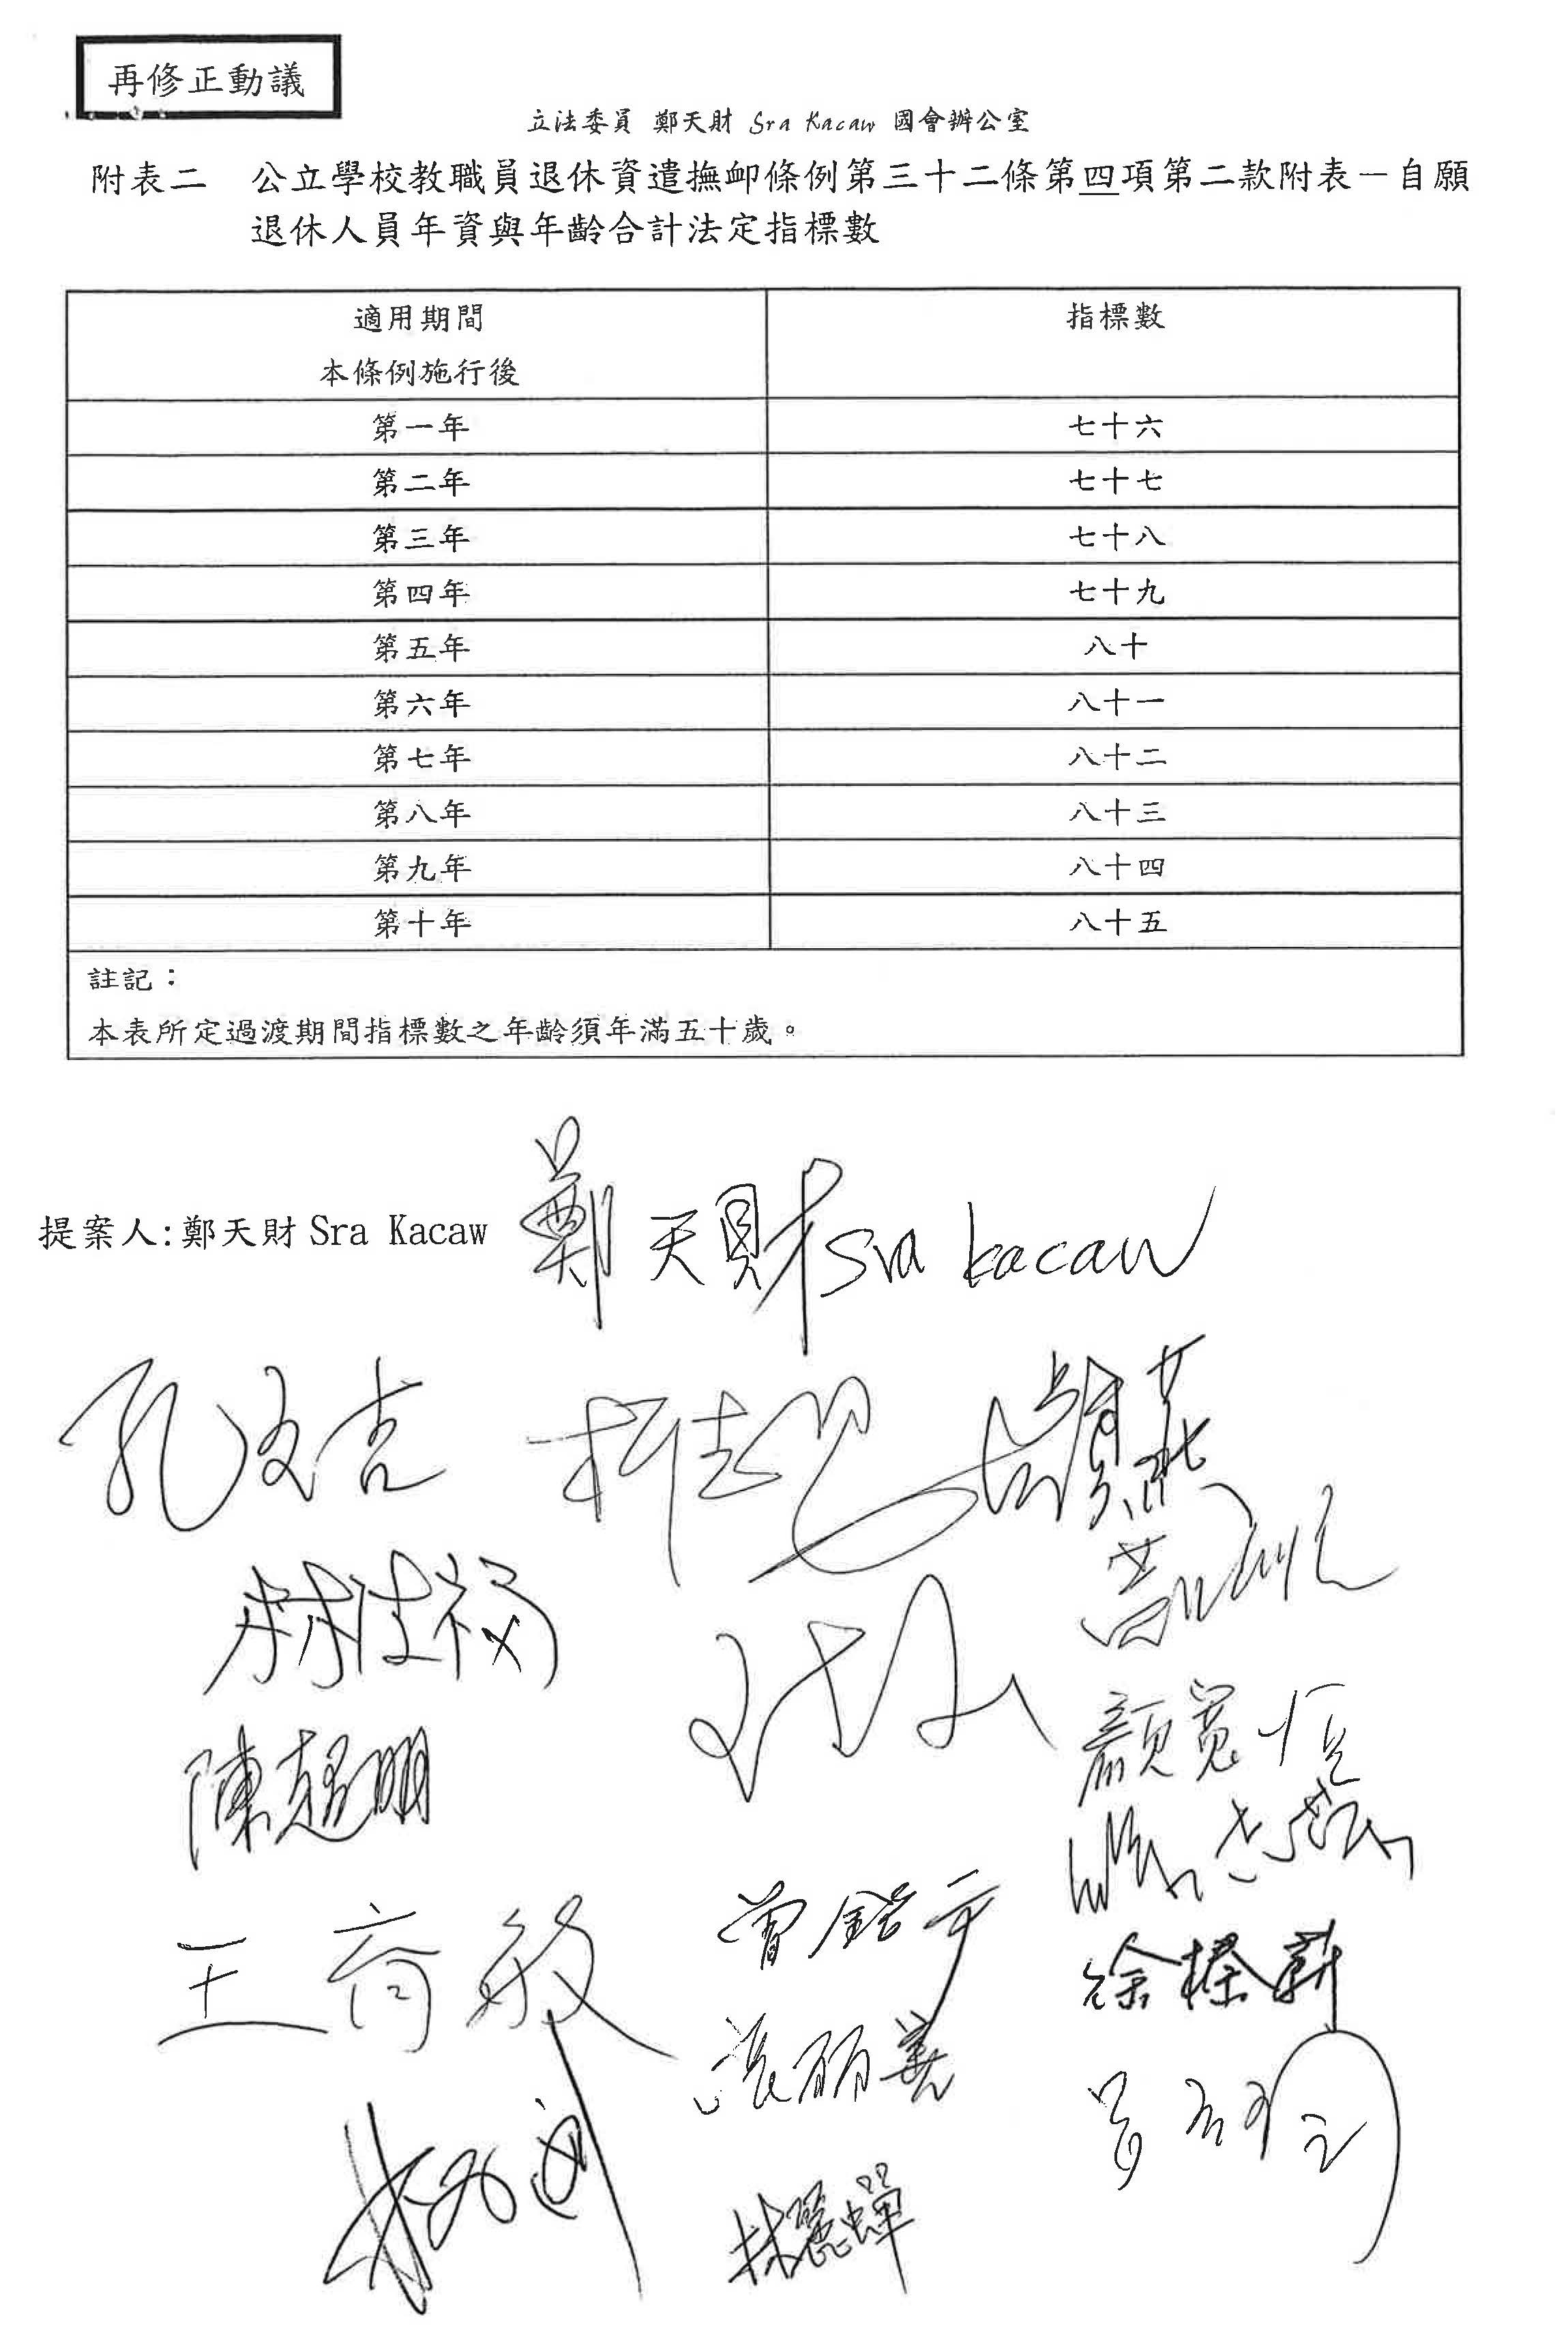 再修正動議
立法委員 鄭天財 Sra Kacaw 國會辦公室
附表二 公立學校教職員退休資遣撫卹條例第三十二條第四項第二款附表－自願
退休人員年資與年齡合計法定指標數
適用期間 指標數
本條例施行後
第一年 七十六
第二年 七十七
第三年 七十八
第四年 七十九
第五年 八十
第六年 八十一
第七年 八十二
第八年 八十三
第九年 八十四
第十年 八十五
註記：
本表所定過渡期間指標數之年齡須年滿五十歲。
提案人:鄭天財 Sra Kacaw 鄭天財 Sra kacaw
孔文吉 柯志恩
林德福
顏寬恒
陳超明
曾銘宗
王育敏
徐榛蔚
張麗善
林麗蟬